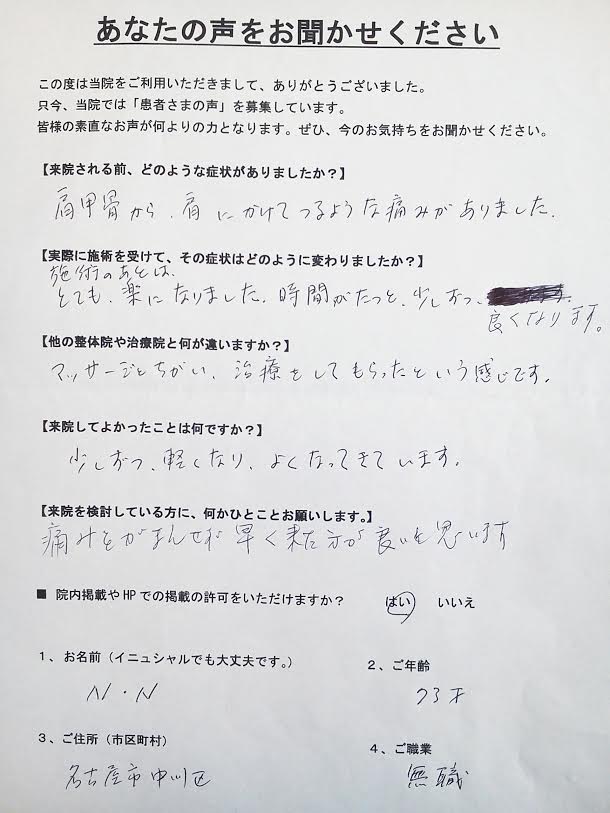 あなたの声をお聞かせください
この度は当院をご利用いただきまして、ありがとうございました。
只今、当院では「患者さまの声」を募集しています。
皆様の素直なお声が何よりの力となります。ぜひ、今のお気持ちをお聞かせください。
【来院される前、どのような症状がありましたか？】
肩甲骨から、肩にかけてつるような痛みがありました。
【実際に施術を受けて、その症状はどのように変わりましたか？】
施術のあとは、
とても、楽になりました。時間がたつと、少しずつ、
良くなります。
【他の整体院や治療院と何が違いますか？】
マッサージとちがい、治療をしてもらったという感じです。
【来院してよかったことは何ですか？】
少しずつ、軽くなり、よくなってきています。
【来院を検討している方に、何かひとことお願いします。】
痛みをがまんせず早く来た方が良いと思います
■ 院内掲載やHPでの掲載の許可をいただけますか？ はい いいえ
1、お名前（イニュシャルでも大丈夫です。） 2、ご年齢
N・N 73才
3、ご住所（市区町村） 4、ご職業
名古屋市中川区 無職